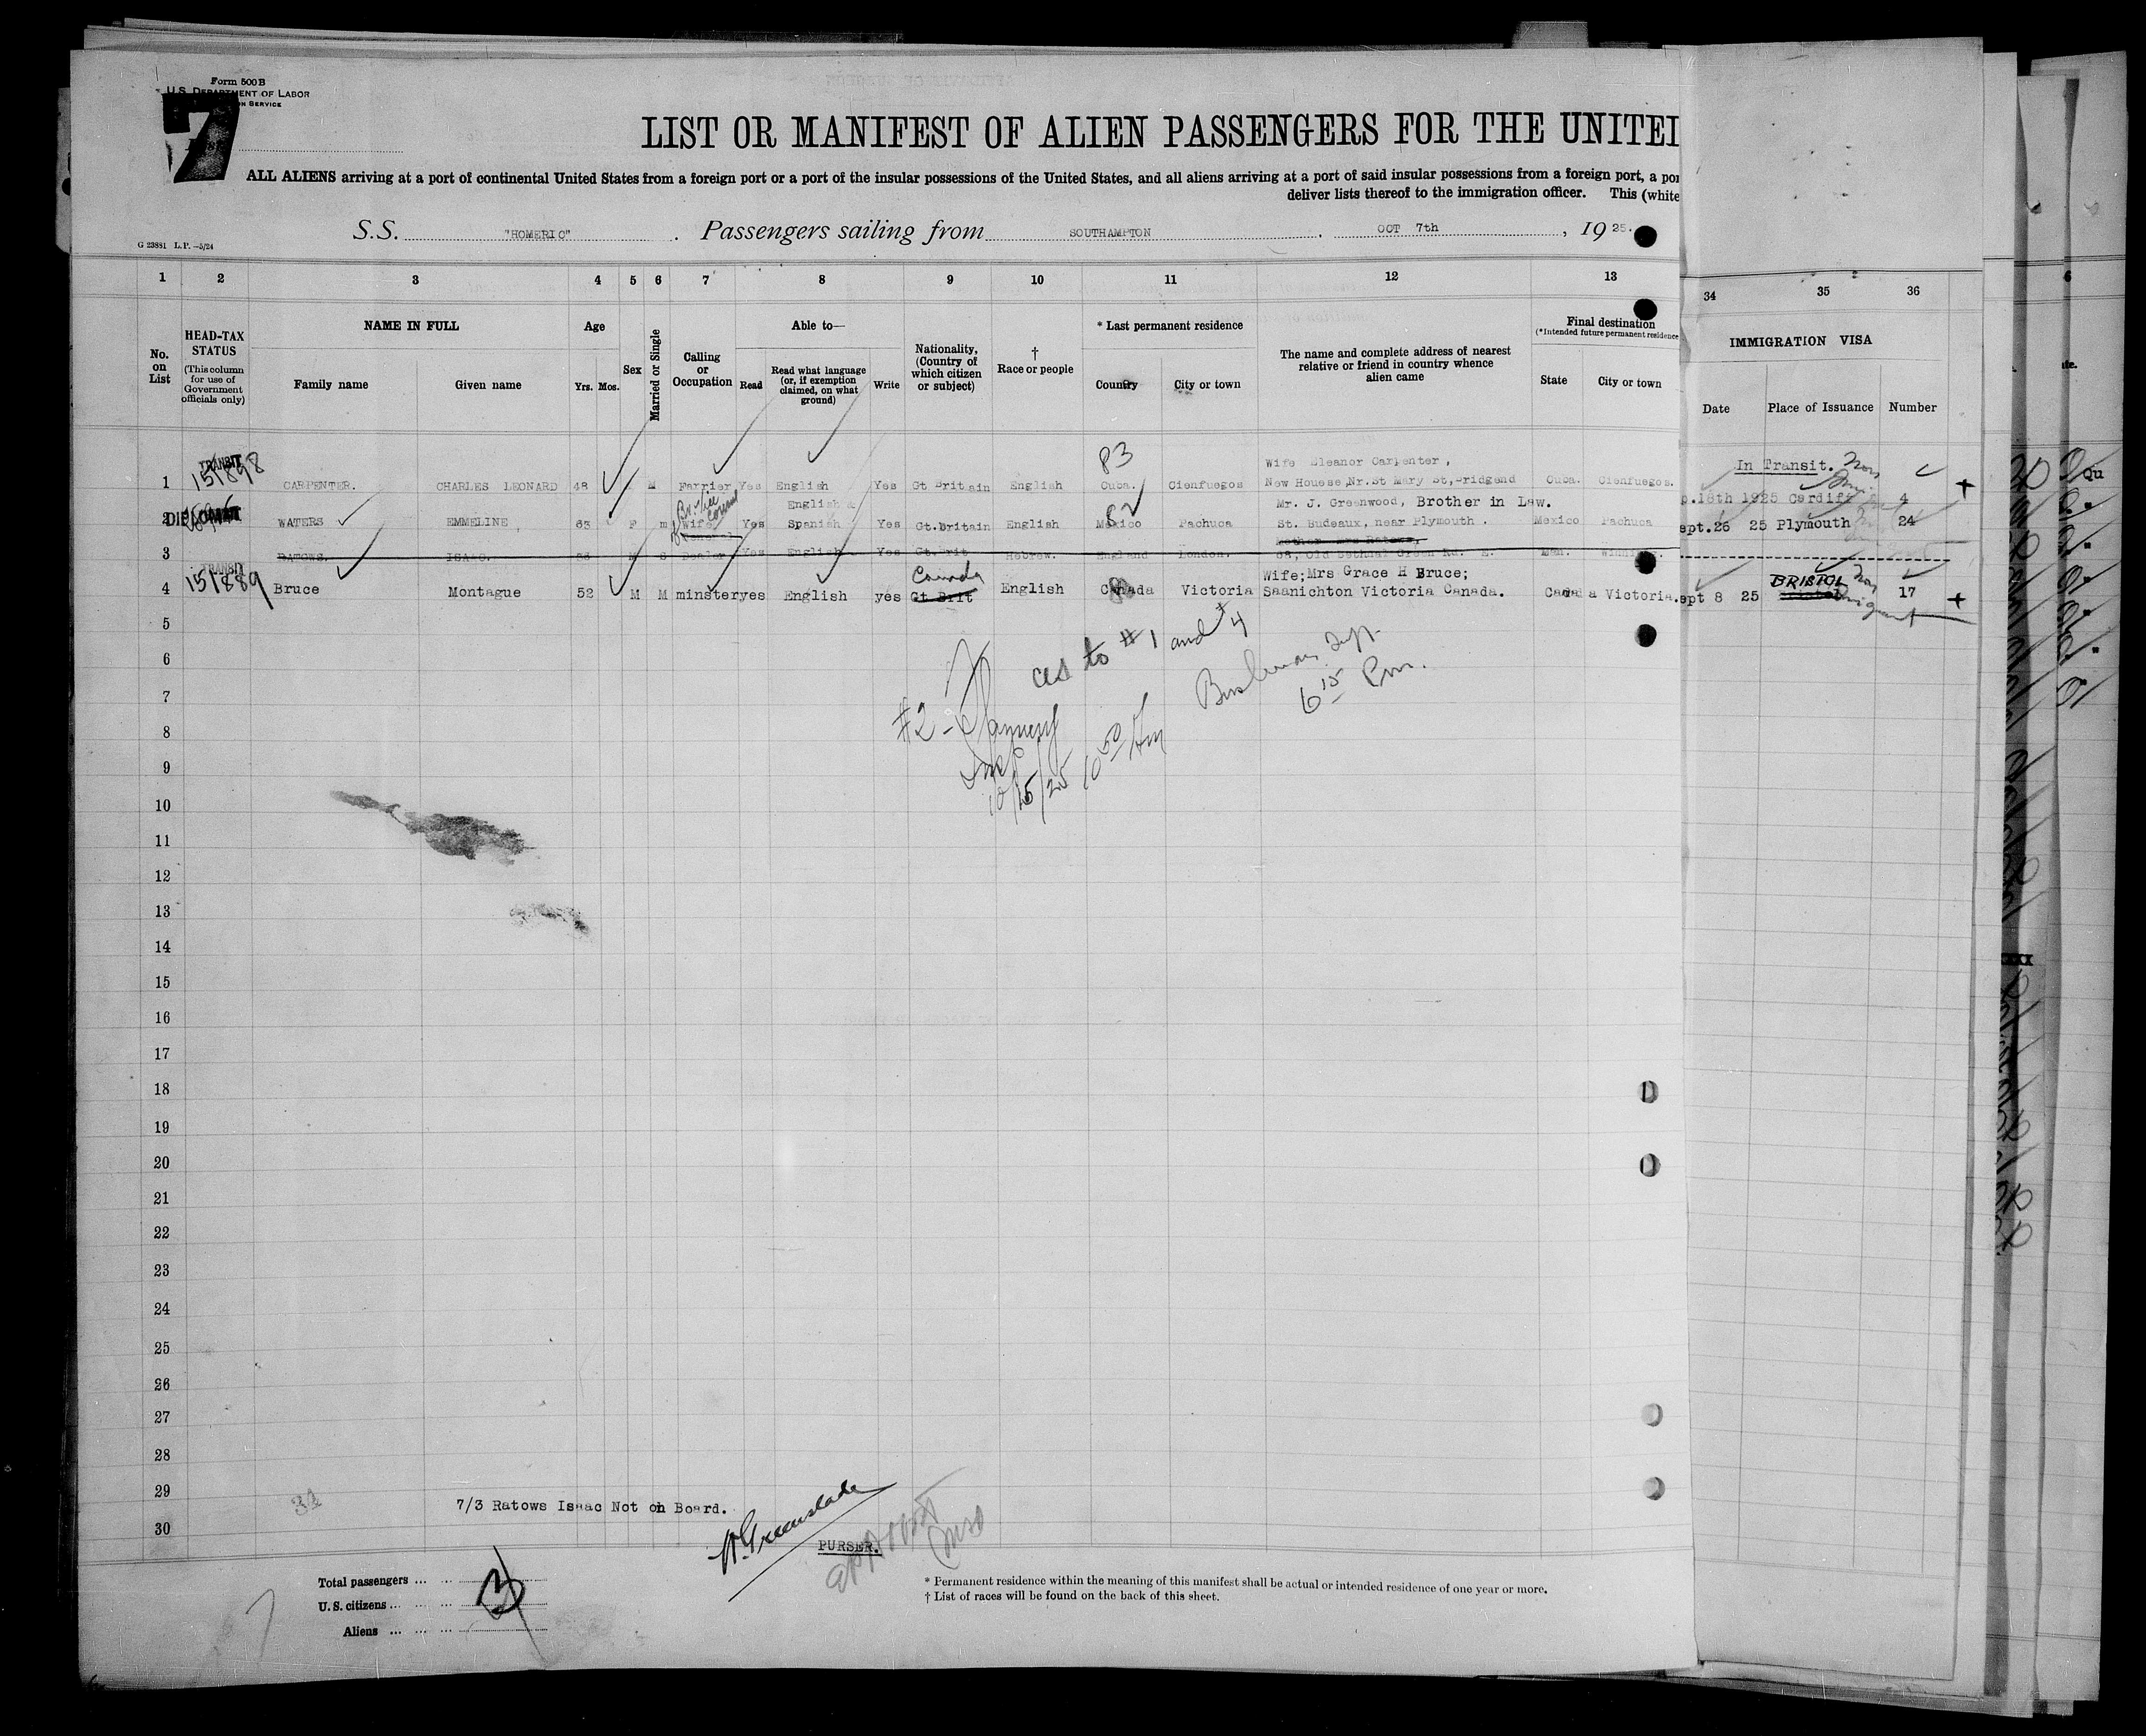 Form 500 B
U.S. DEPARTMENT OF LABOR
7
LIST OR MANIFEST OF ALIEN PASSENGERS FOR THE UNITE
ALL ALIENS arriving at a port of continental United States from a foreign port or a port of the insular possessions of the United States, and all aliens arriving at a port of said insular possessions from a foreign port, a por
deliver lists thereof to the immigration officer. This (white
G 23881 L.P.—5/24
S.S. "HOMERIC" . Passengers sailing from SOUTHAMPTON , OCT 7th , 19 25.
1 2 3 4 5 6 7 8 9 10 11 12 13 34 35 36
No. on List
HEAD-TAX STATUS
(This column for use of Government officials only)
NAME IN FULL
Family name Given name
Age
Yrs. Mos.
Sex
Married or Single
Calling or Occupation
Able to—
Read
Read what language (or, if exemption claimed, on what ground)
Write
Nationality, (Country of which citizen or subject)
† Race or people
* Last permanent residence
Country City or town
The name and complete address of nearest relative or friend in country whence alien came
Final destination
(*Intended future permanent residence
State City or town
IMMIGRATION VISA
Date Place of Issuance Number
TRANSIT 83 Wife Eleanor Carpenter, In Transit. Non
1 15/898 CARPENTER. CHARLES LEONARD 48 M Farrier Yes English Yes Gt Britain English Cuba. Cienfuegos New Houese,Nr.St Mary St, Cuba. Cienfuegos.
p.18th 1925 Cardiff 4
DIPLOMAT Br. Vice Consul English & 82 Mr. J. Greenwood, Brother in Law.
2 WATERS EMMELINE 63 F m Wife Yes Spanish Yes Gt.Britain English Mexico Pachuca St. Budeaux, near Plymouth. Mexico Pachuca ept.26 25 Plymouth 24
Mother Mrs Ratows,
3 RATOWS. ISAAC. 26 M S Dealer Yes English Yes Gt.Brit Hebrew. England London. 68, Old Bethnal Green Rd. E. Man. Winnipeg.
TRANSIT Canada Wife;Mrs Grace H Bruce; BRISTOL Non
4 15/889 Bruce Montague 52 M M minster yes English yes Gt Brit English Canada Victoria Saanichton Victoria Canada. Canada Victoria. ept 8 25 Bristol 17
5
6 as to #1 and #4
7 6 15 Pm.
8 #2 -
9 Insp
10 10/15/25 10 50 Am
11
12
13
14
15
16
17
18
19
20
21
22
23
24
25
26
27
28
29
7/3 Ratows Isaac Not on Board.
30
H Greenslade
PURSER.
Total passengers ... ... 3
U. S. citizens ... ... ...
Aliens ... ... ...
* Permanent residence within the meaning of this manifest shall be actual or intended residence of one year or more.
† List of races will be found on the back of this sheet.